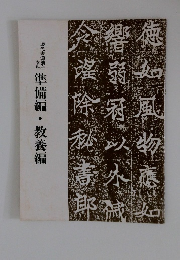 準備編・教養編
德如風物應如
響弱冠以外戚
令淫除秘書郎